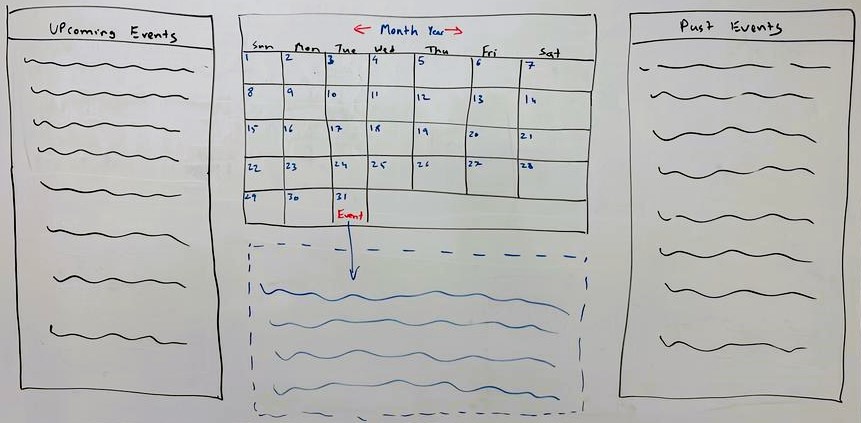 UPcoming Events
← Month Year →
Sun Mon Tue Wed Thu Fri Sat
1 2 3 4 5 6 7
8 9 10 11 12 13 14
15 16 17 18 19 20 21
22 23 24 25 26 27 28
29 30 31
Event
Past Events